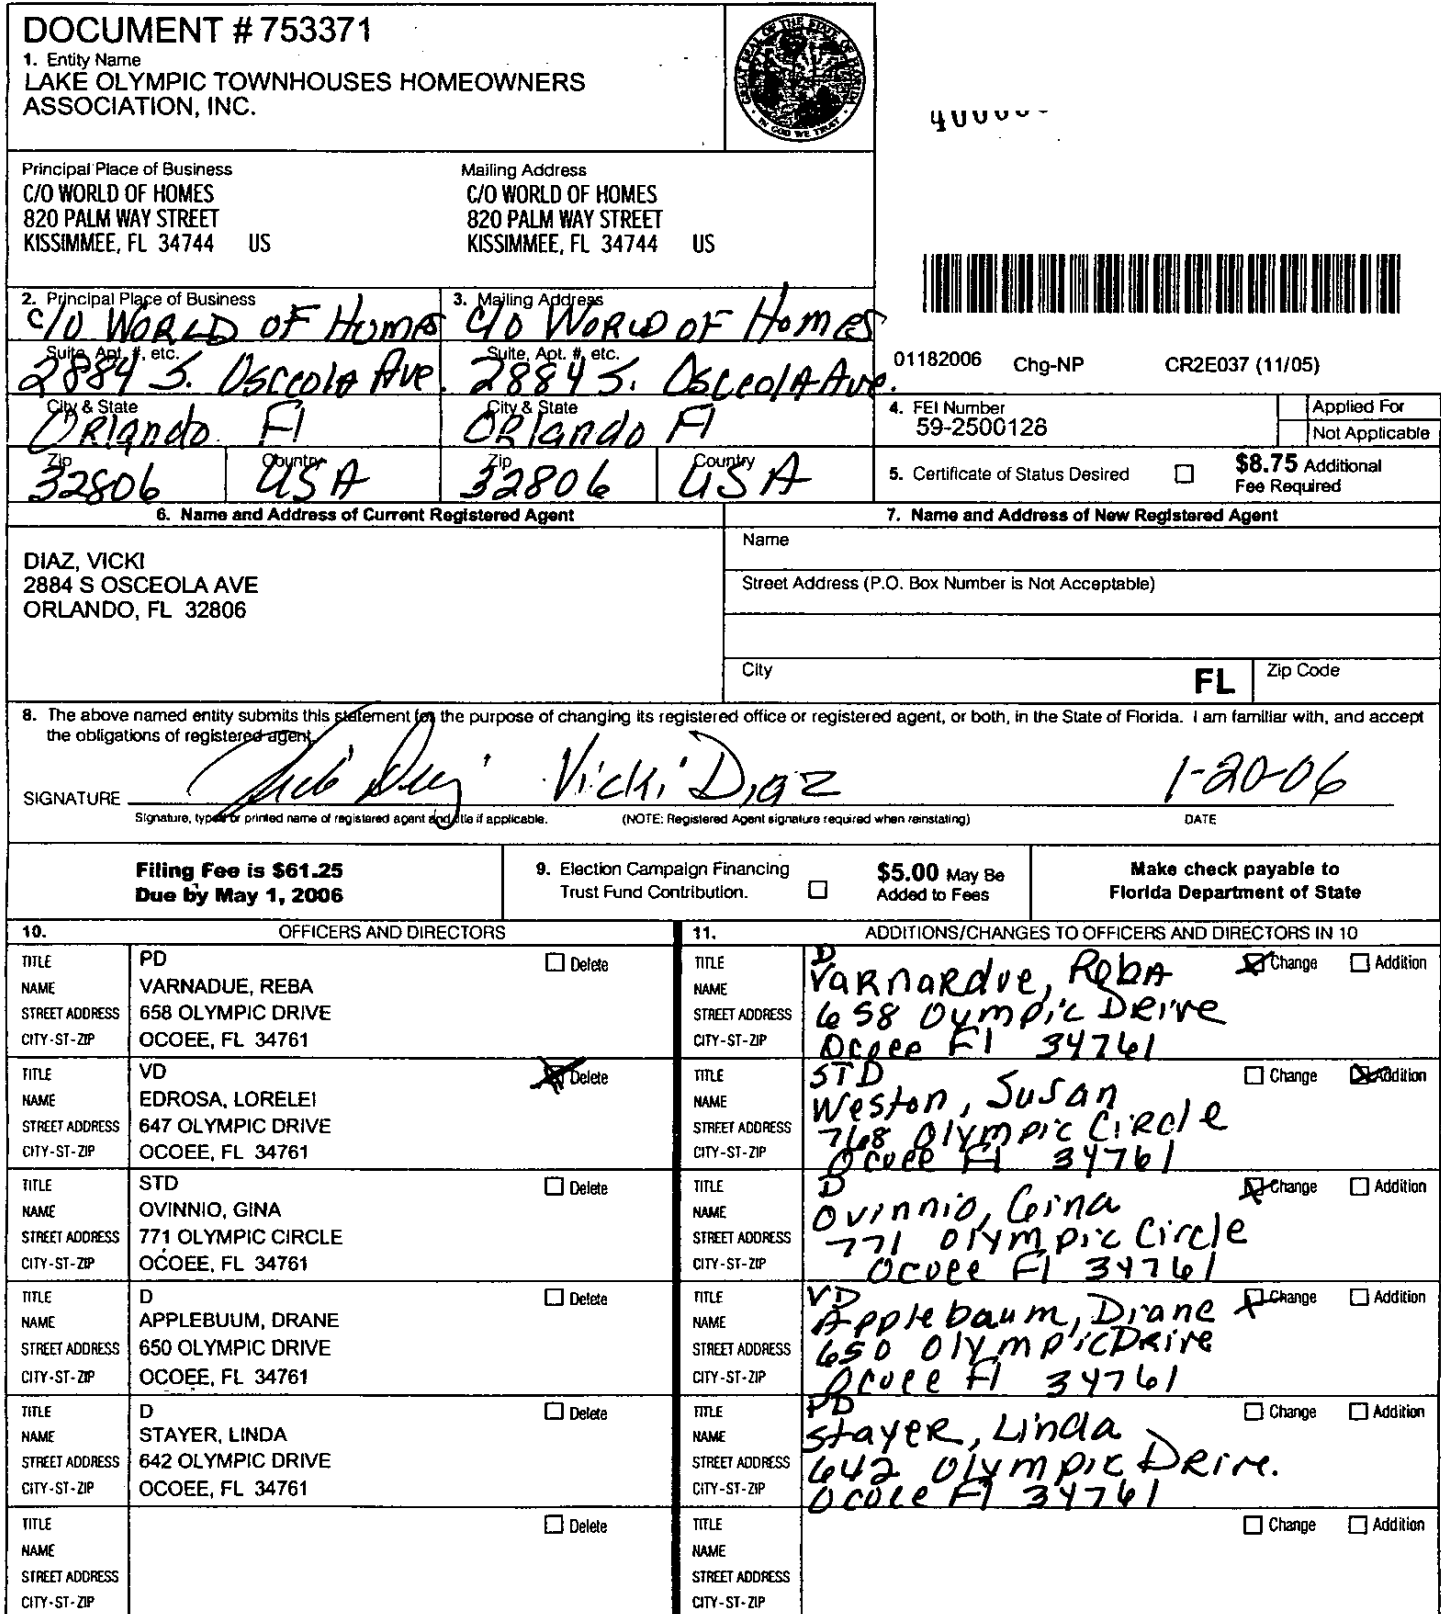 DOCUMENT # 753371
1. Entity Name
LAKE OLYMPIC TOWNHOUSES HOMEOWNERS
ASSOCIATION, INC.
GREAT SEAL OF THE STATE OF FLORIDA
IN GOD WE TRUST
Principal Place of Business
C/O WORLD OF HOMES
820 PALM WAY STREET
KISSIMMEE, FL 34744 US
Mailing Address
C/O WORLD OF HOMES
820 PALM WAY STREET
KISSIMMEE, FL 34744 US
2. Principal Place of Business
C/O WORLD OF HOMES
Suite, Apt. #, etc.
2884 S. Osceola Ave.
City & State
Orlando Fl
Zip
32806
Country
USA
3. Mailing Address
C/O WORLD OF HOMES
Suite, Apt. #, etc.
2884 S. Osceola Ave.
City & State
Orlando Fl
Zip
32806
Country
USA
01182006 Chg-NP CR2E037 (11/05)
4. FEI Number
59-2500128
Applied For
Not Applicable
5. Certificate of Status Desired
$8.75 Additional
Fee Required
6. Name and Address of Current Registered Agent
DIAZ, VICKI
2884 S OSCEOLA AVE
ORLANDO, FL 32806
7. Name and Address of New Registered Agent
Name
Street Address (P.O. Box Number is Not Acceptable)
City FL Zip Code
8. The above named entity submits this statement for the purpose of changing its registered office or registered agent, or both, in the State of Florida. I am familiar with, and accept
the obligations of registered agent.
SIGNATURE Vicki Diaz Vicki Diaz 1-20-06
Signature, typed or printed name of registered agent and title if applicable. (NOTE: Registered Agent signature required when reinstating) DATE
Filing Fee is $61.25
Due by May 1, 2006
9. Election Campaign Financing
Trust Fund Contribution.
$5.00 May Be
Added to Fees
Make check payable to
Florida Department of State
10. OFFICERS AND DIRECTORS
11. ADDITIONS/CHANGES TO OFFICERS AND DIRECTORS IN 10
TITLE PD Delete
NAME VARNADUE, REBA
STREET ADDRESS 658 OLYMPIC DRIVE
CITY-ST-ZIP OCOEE, FL 34761
TITLE D Change Addition
NAME Varnardue, Reba
STREET ADDRESS 658 Oympic Drive
CITY-ST-ZIP Ocoee Fl 34761
TITLE VD Delete
NAME EDROSA, LORELEI
STREET ADDRESS 647 OLYMPIC DRIVE
CITY-ST-ZIP OCOEE, FL 34761
TITLE STD Change Addition
NAME Weston, Susan
STREET ADDRESS 768 Olympic Circle
CITY-ST-ZIP Ocoee Fl 34761
TITLE STD Delete
NAME OVINNIO, GINA
STREET ADDRESS 771 OLYMPIC CIRCLE
CITY-ST-ZIP OCOEE, FL 34761
TITLE D Change Addition
NAME Ovinnio, Gina
STREET ADDRESS 771 Olympic Circle
CITY-ST-ZIP Ocoee Fl 34761
TITLE D Delete
NAME APPLEBUUM, DRANE
STREET ADDRESS 650 OLYMPIC DRIVE
CITY-ST-ZIP OCOEE, FL 34761
TITLE VD Change Addition
NAME Applebaum, Diane
STREET ADDRESS 650 Olympic Drive
CITY-ST-ZIP Ocoee Fl 34761
TITLE D Delete
NAME STAYER, LINDA
STREET ADDRESS 642 OLYMPIC DRIVE
CITY-ST-ZIP OCOEE, FL 34761
TITLE PD Change Addition
NAME Stayer, Linda
STREET ADDRESS 642 Olympic Drive.
CITY-ST-ZIP Ocoee Fl 34761
TITLE Delete
NAME
STREET ADDRESS
CITY-ST-ZIP
TITLE Change Addition
NAME
STREET ADDRESS
CITY-ST-ZIP